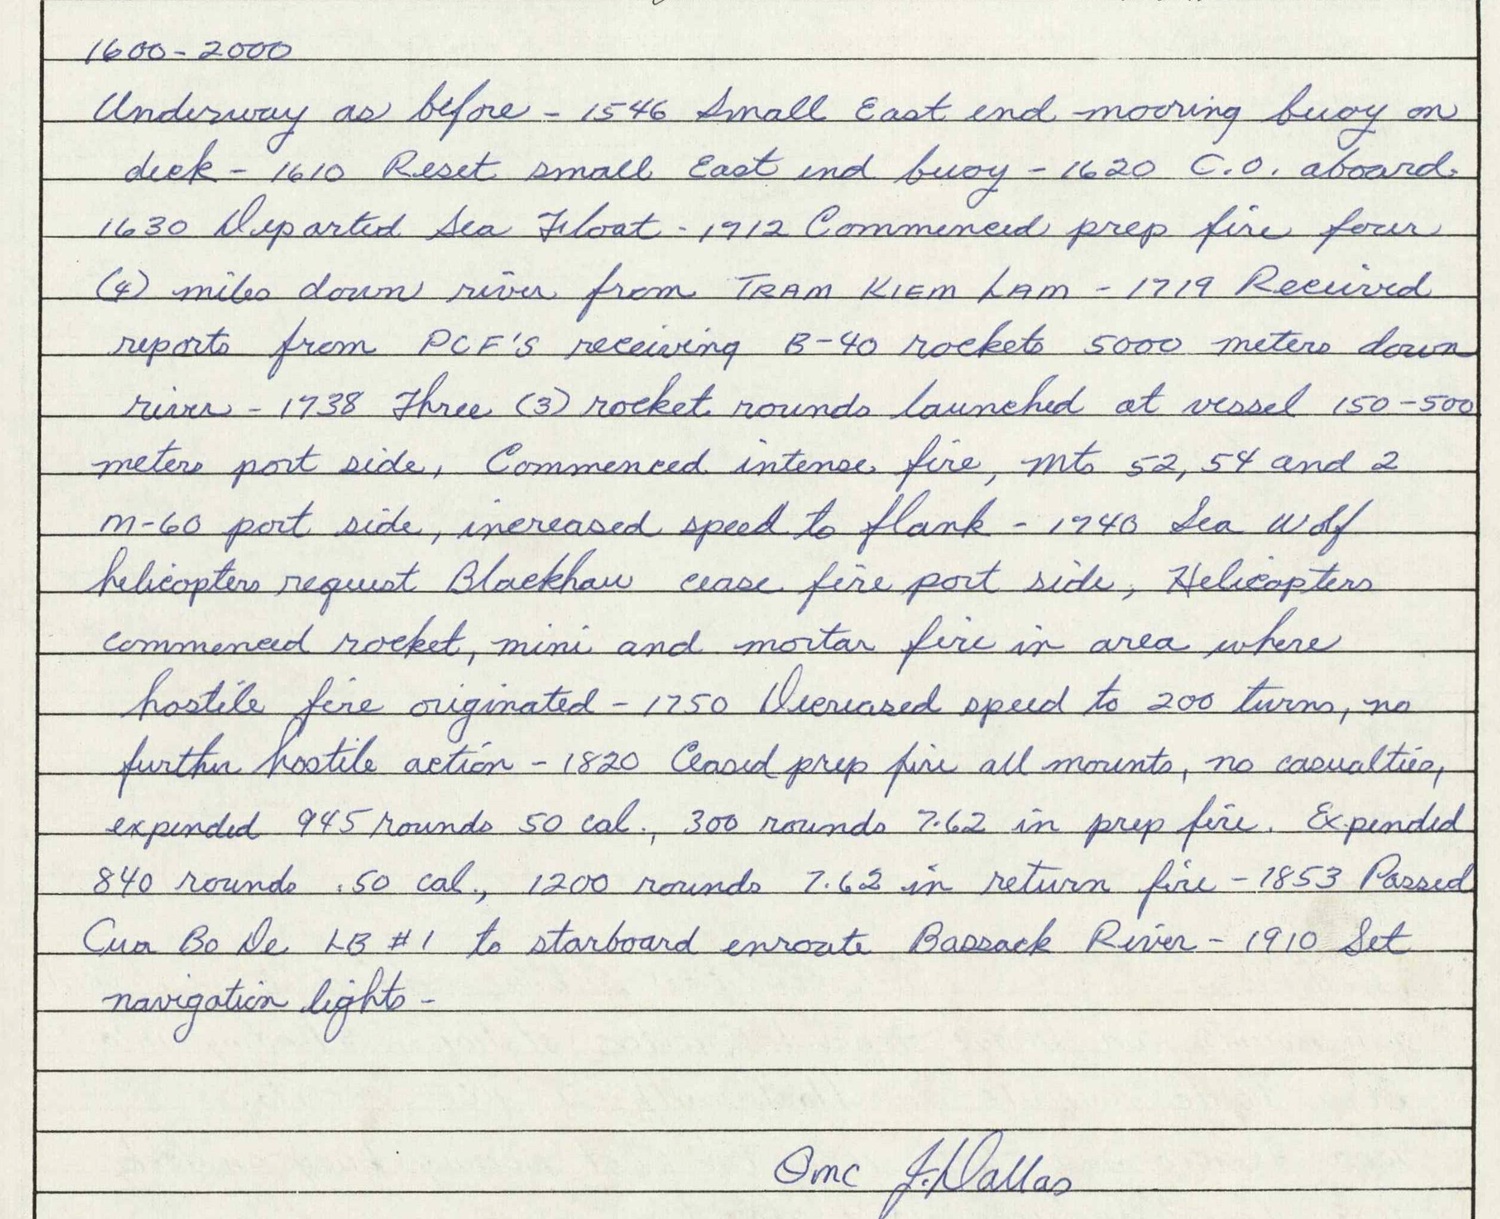 1600-2000
Underway as before - 1546 Small East end mooring buoy on
deck - 1610 Reset small East end buoy - 1620 C.O. aboard.
1630 Departed Sea Float - 1712 Commenced prep fire four
(4) miles down river from TRAM KIEM LAM - 1719 Received
reports from PCF'S receiving B-40 rockets 5000 meters down
river - 1738 Three (3) rocket rounds launched at vessel 150-500
meters port side, Commenced intense fire, mts 52, 54 and 2
M-60 port side, increased speed to flank - 1740 Sea Wolf
helicopters request Blackhaw cease fire port side, Helicopters
commenced rocket, mini and mortar fire in area where
hostile fire originated - 1750 Decreased speed to 200 turns, no
further hostile action - 1820 Ceased prep fire all mounts, no casualties,
expended 945 rounds 50 cal., 300 rounds 7.62 in prep fire. Expended
840 rounds .50 cal., 1200 rounds 7.62 in return fire - 1853 Passed
Cua Bo De LB #1 to starboard enroute Bassack River - 1910 Set
navigation lights -
QMC J. Dallas